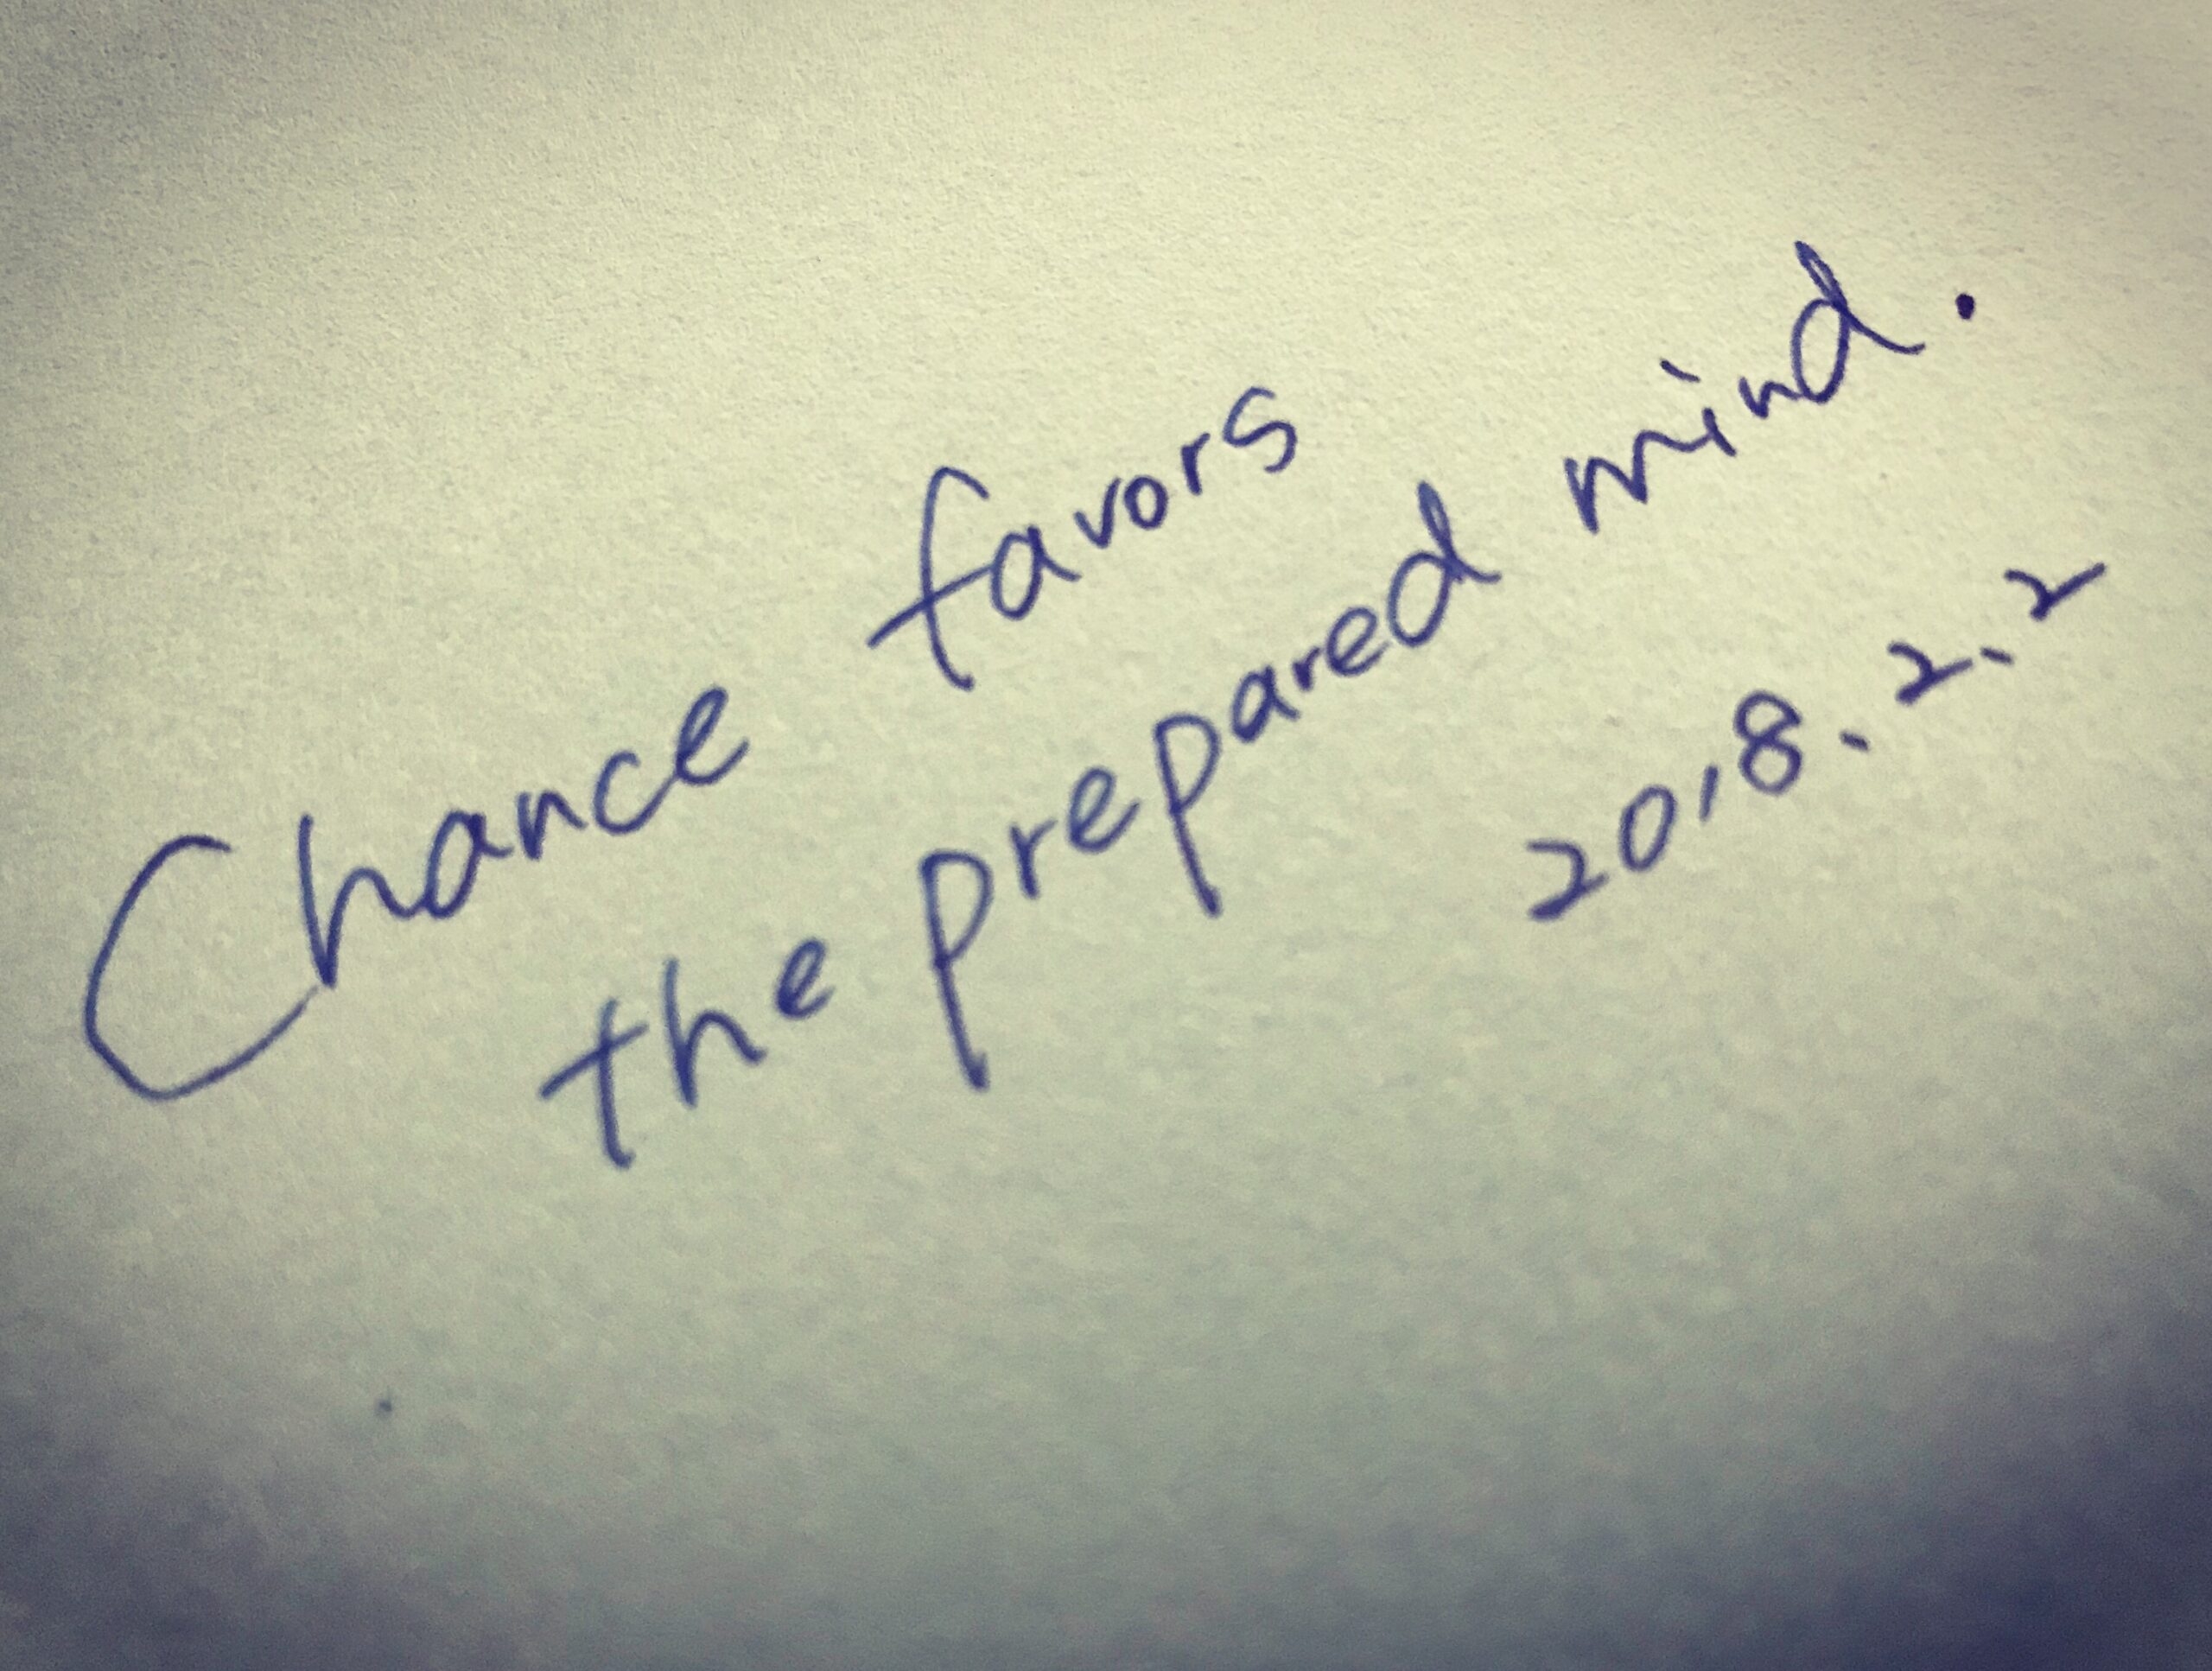 Chance favors
the prepared mind.
2018.2.2